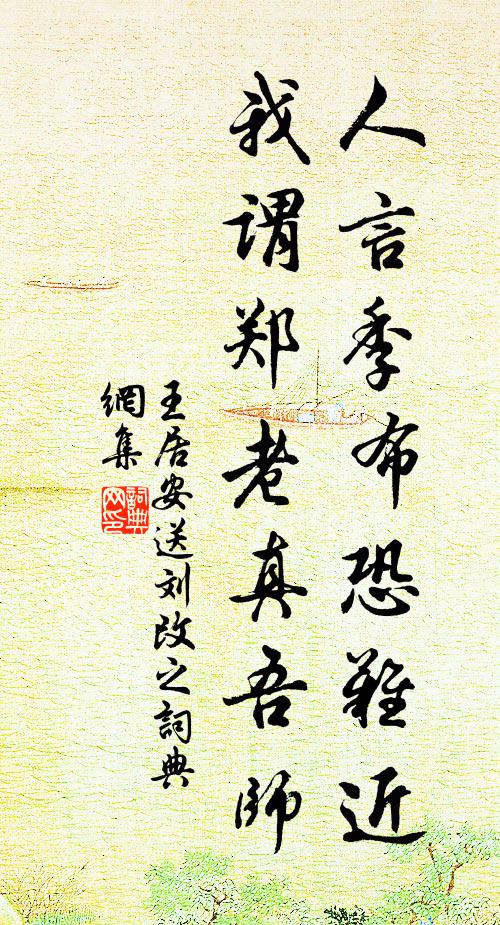 人言季布恐難近
我谓郑老真吾師
王居安送刘改之詞典
網集
詞典网印